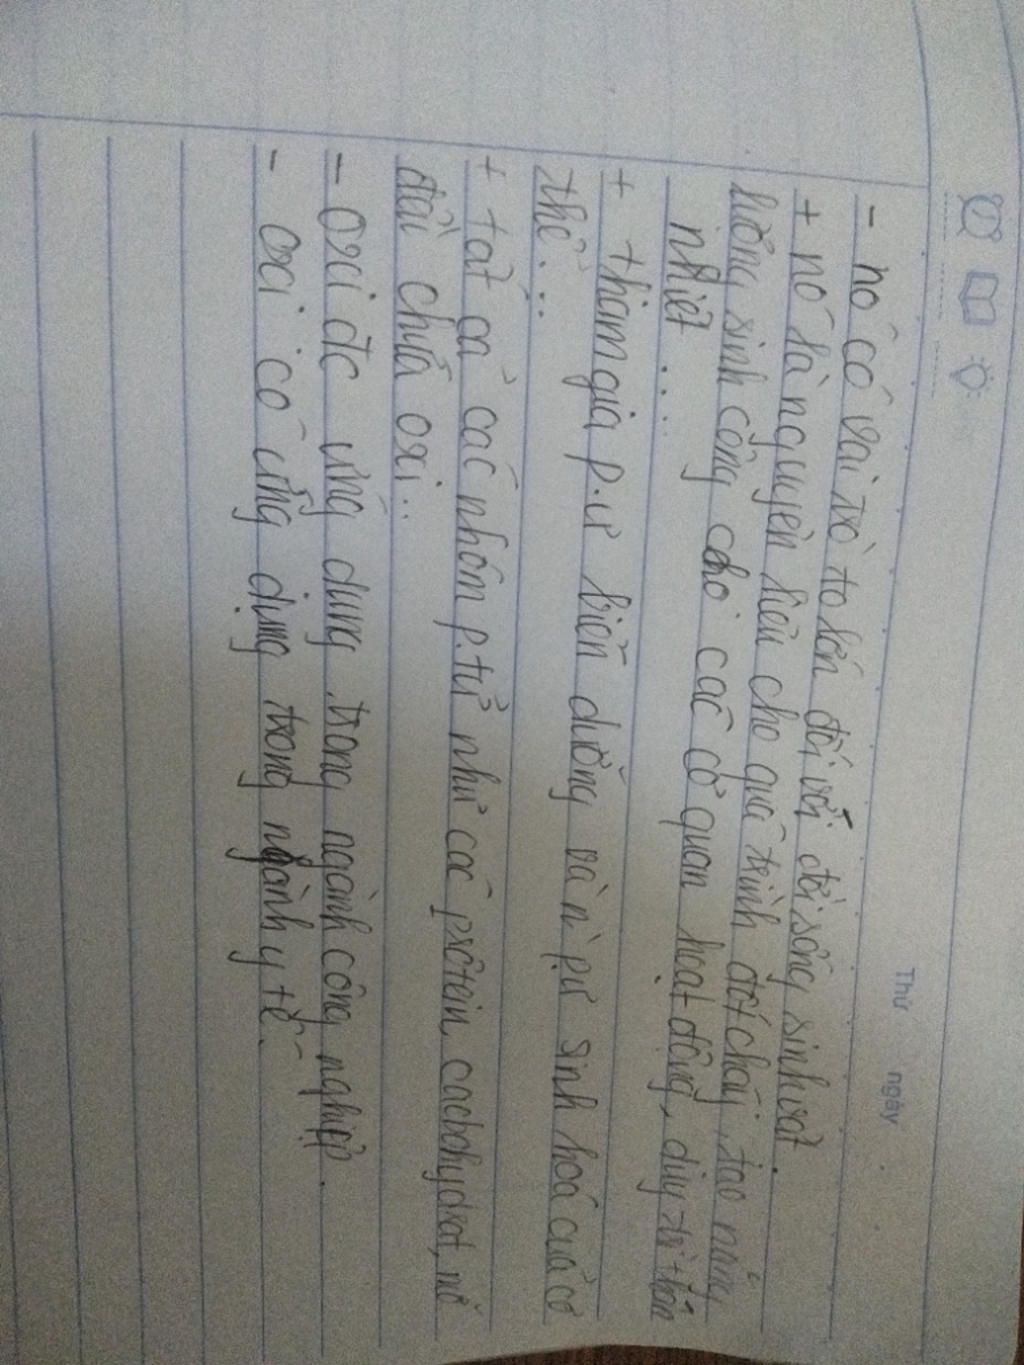 Thứ ngày
- nó có vai trò to lớn đối với đời sống sinh vật.
+ nó là nguyên liệu cho quá trình đốt cháy, tạo năng
lượng sinh công cho các cơ quan hoạt động, duy trì thân
nhiệt ....
+ tham gia p.ư biến dưỡng và n` pư sinh hoá của cơ
thể...
+ tất cả các nhóm p.tử như các prôtein, cacbohyđrat, mỡ
đều chứa oxi...
- oxi đc ứng dụng trong ngành công nghiệp.
- oxi có ứng dụng trong ngành y tế.